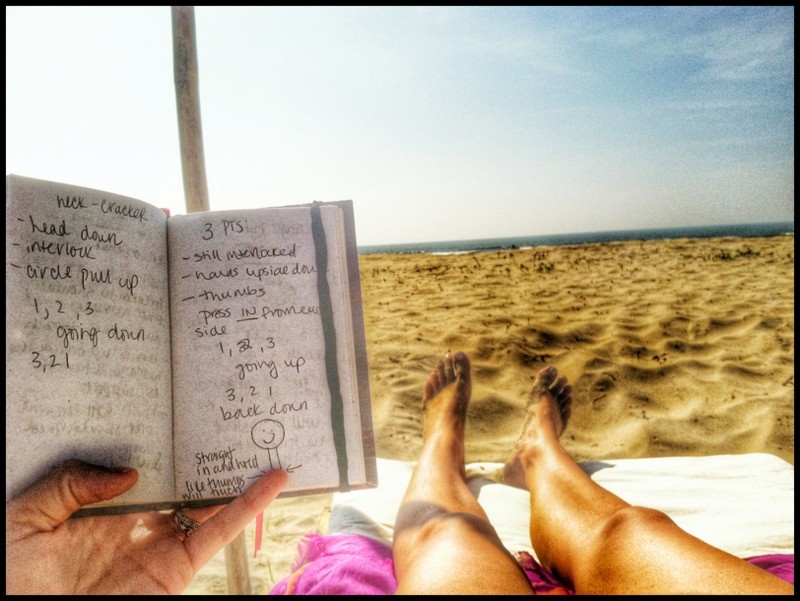 neck-cracker
- head down
- interlock
- circle pull up
1, 2, 3
going down
3, 2 1
3 PTS:
- still interlocked
- hands upside dow
- thumbs
press IN from
side
1, 2, 3
going up
3, 2 1
back down
straight
in and hold
like thumbs
will touch